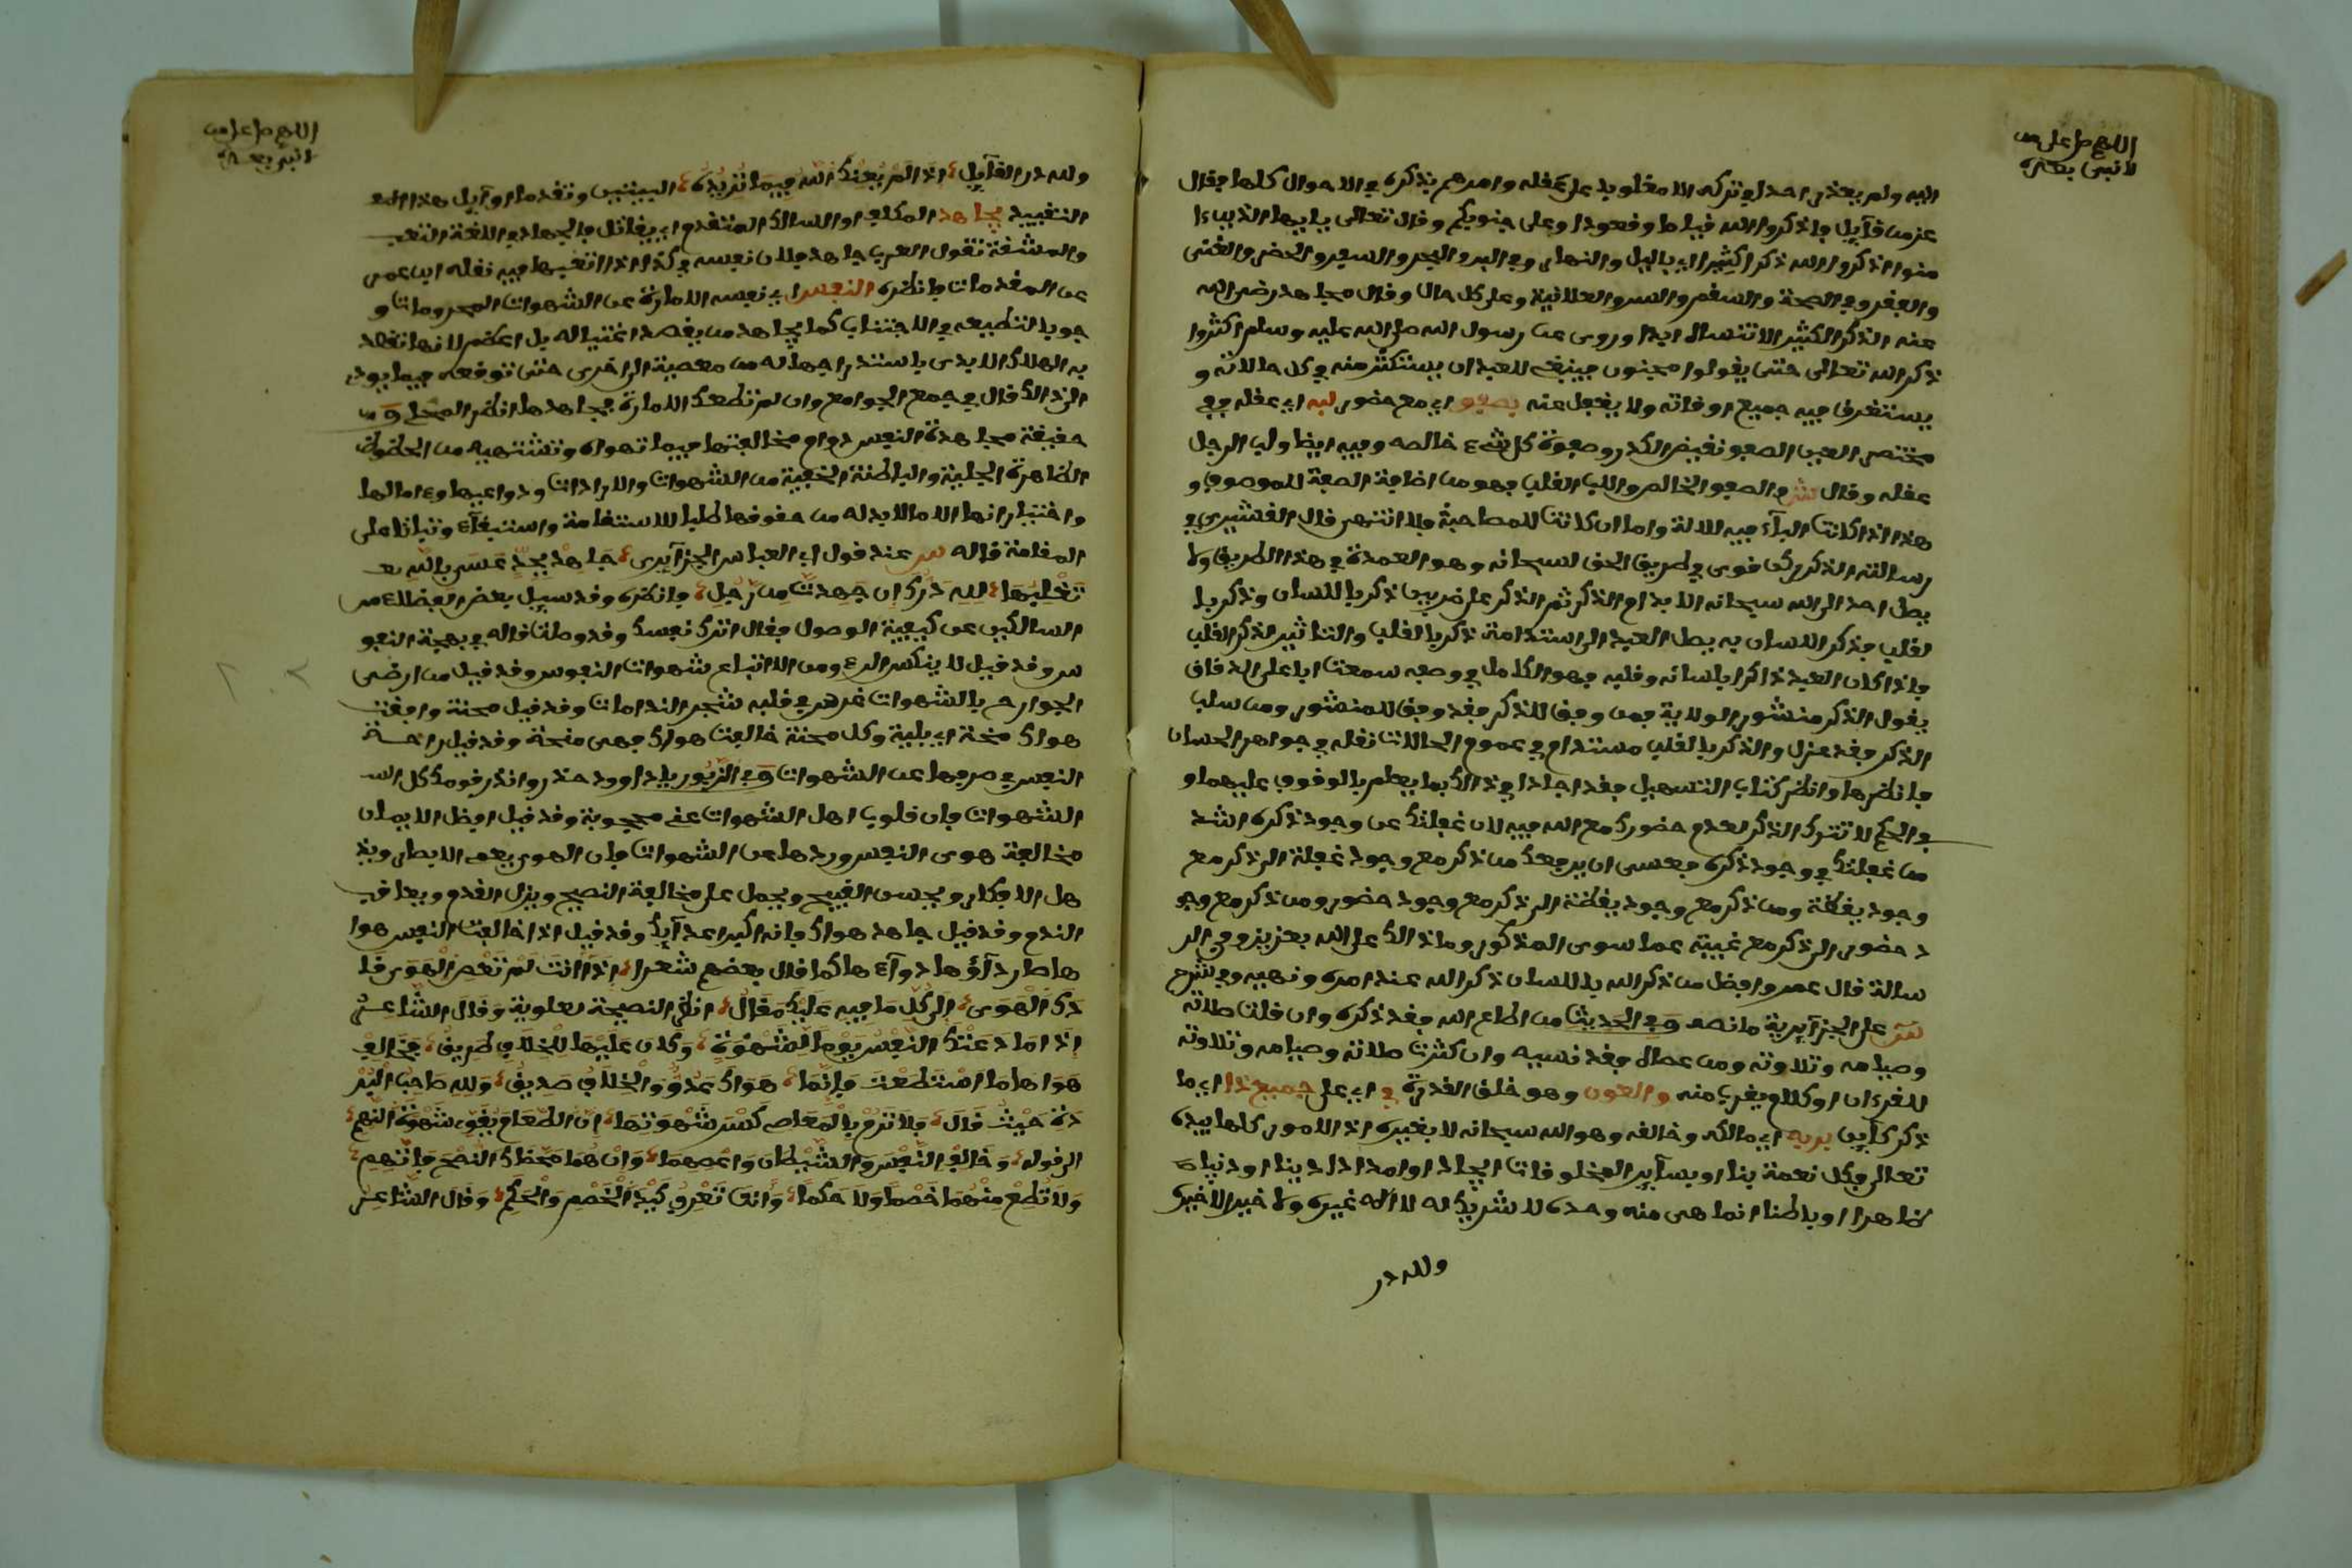 اللهم صل على من
لا نبي بعده
اليه ولم يعذر احدا في تركه الا مغلوبا على عقله وامرهم بذكره في الاحوال كلها فقال
عز من قائل فاذكروا الله قياما وقعودا وعلى جنوبكم وقال تعالى يا ايها الذين ءا
منوا اذكروا الله ذكرا كثيرا اي بالليل والنهار وفي البر والبحر والسفر والحضر والغنى
والفقر وفي الصحة والسقم والسر والعلانية وعلى كل حال وقال مجاهد رضي الله
عنه الذكر الكثير الا تنساه ابدا وروى عن رسول الله صلى الله عليه وسلم اكثروا
ذكر الله تعالى حتى يقولوا مجنون فينبغي للعبد ان يستكثر منه في كل حالاته و
يستغرق فيه جميع اوقاته ولا يغفل عنه بصفو اي مع حضور لبه اي عقله ففي
مختصر العين الصفو نقيض الكدر وصفوة كل شيء خالصه وفيه ايضا ولب الرجل
عقله وقال الصفو الخالص واللب القلب فهو من اضافة الصفة للموصوف و
هذا اذا كانت الباء فيه للالة واما ان كانت للمصاحبة فلا انتهى قال القشيري في
رسالته الذكر ركن قوي في طريق الحق سبحانه وهو العمدة في هذا الطريق ولا
يصل احد الى الله سبحانه الا بدوام الذكر ثم الذكر على ضربين ذكر باللسان وذكر با
لقلب فذكر اللسان به يصل العبد الى استدامة ذكر بالقلب والتاثير لذكر القلب
فاذا كان العبد ذاكرا بلسانه وقلبه فهو الكامل في وصفه سمعت ابا علي الدقاق
يقول الذكر منشور الولاية فمن وفق للذكر فقد وفق للمنشور ومن سلب
الذكر فقد عزل والذكر بالقلب مستدام في عموم الحالات نقله في جواهر الحسان
فانظرها وانظر كتاب التسهيل فقد اجاد في ذالك بما يعلم بالوقوف عليهما و
في الحكم لا تترك الذكر لعدم حضورك مع الله فيه لان غفلتك عن وجود ذكره اشد
من غفلتك في وجود ذكره فعسى ان يرفعك من ذكر مع وجود غفلة الى ذكر مع
وجود يقظة ومن ذكر مع وجود يقظة الى ذكر مع وجود حضور ومن ذكر مع وجو
د حضور الى ذكر مع غيبة عما سوى المذكور وما ذالك على الله بعزيز وفي الر
سالة قال عمر وافضل من ذكر الله باللسان ذكر الله عند امره ونهيه وفي شرح
على الجزايرية ما نصه وفي الحديث من اطاع الله فقد ذكره وان قلت صلاته
وصيامه وتلاوته ومن عصاه فقد نسيه وان كثرت صلاته وصيامه وتلاوته
للقرءان او كلام يقرب منه والعون وهو خلق القدرة في اي على جميع ذا اي ما
ذكر كاين بربه اي مالكه وخالقه وهو الله سبحانه لا بغيره اذ الامور كلها بيده
تعالى فكل نعمة بنا او بساير المخلوقات ايجادا او امدادا دينا او دنيا
ظاهرا او باطنا انما هي منه وحده لا شريك له لا اله غيره ولا خير الا خيره
ولله در
اللهم صل على من
لا نبي بعده
ولله در القائل اذا لم يعنك الله فيما تريده البيتين وتقدما اوايل هذا
التقييد يجاهد المكلف او السالك المتقدم اي يقاتل فالجهاد في اللغة التعب
والمشقة تقول العرب جاهد فلان نفسه في كذا اذا اتعبها فيه نقله ابن عمر
عن المقدمات فانظره النفس اي نفسه الامارة عن الشهوات المحرومات و
جوبا لتطيعه في الاجتناب كما يجاهد من يقصد اغتياله بل اعظم لانها تقصد
به الهلاك الابدي باستدراجها له من معصية الى اخرى حتى توقعه فيما يودي
الى ذالك قال في جمع الجوامع وان لم تطعك الامارة فجاهدها انظر المحلي و من
حقيقة مجاهدة النفس دوام مخالفتها فيما تهواه وتشتهيه من الحظوظ
الظاهرة الجلية والباطنة الخفية من الشهوات والارادات ودواعيها وءامالها
واختياراتها الا ما لابد له من حقوقها طلبا للاستقامة واستيفاء وثباتا على
المقامة قاله عند قول ابي العباس الجزايري جاهد بجد عسى بالله
تغلبها لله درك ان جهدت من رجل فانظره وقد سيل بعض الفضلاء من
السالكين عن كيفية الوصول فقال اترك نفسك وقد وصلت قاله في بهجة النفو
س وقد قيل لا ينكسر المرء ومن الاتباع شهوات النفوس وقد قيل من ارضى
الجوارح بالشهوات غرس في قلبه شجر الندامات وقد قيل محنة وافقت
هواك منحة اي بلية وكل محنة خالفت هواك فهي منحة وقد قيل راحة
النفس في صرفها عن الشهوات وفي الزبور يا داوود حذر وانذر قومك كل
الشهوات فان قلوب اهل الشهوات عني محجوبة وقد قيل افضل الايمان
مخالفة هوى النفس وردها عن الشهوات فان الهوى يعمي الابصار ويذ
هل الافكار ويحسن القبيح ويحمل على مخالفة النصيح ويزل القدم ويعاقب
الندم وقد قيل جاهد هواك فانه اكبر اعدايك وقد قيل اذا خالفت النفس هوا
ها صار داؤها دواءها كما قال بعضهم شعرا اذا انت لم تعص الهوى قا
دك الهوى الى كل ما فيه عليك مقال انظر النصيحة لعلوية وقال الشاعر
اذا ما دعتك النفس يوما لشهوة وكان عليها للخلاف طريق فخالف
هواها ما استطعت فانما هواك عدو والخلاف صديق ولله صاحب البر
دة حيث قال فلا ترم بالمعاصي كسر شهوتها ان الطعام يقوي شهوة النهم
الى قوله وخالف النفس والشيطان واعصهما وان هما محضاك النصح فاتهم
ولا تطع منهما خصما ولا حكما وانت تعرف كيد الخصم والحكم وقال الشاعر